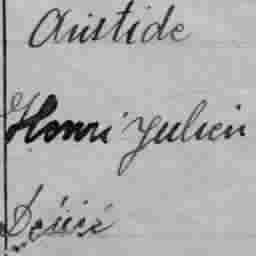 Aristide
Henri Julien
Désiré